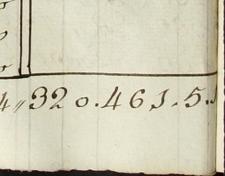 4 „ 320.461.5.